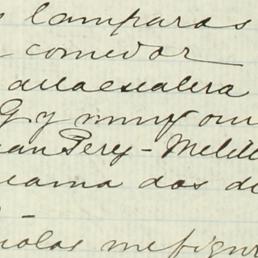 lamparas
comedor
dela escalera
G y muy on
uan Perez - Melill
cama dos de
olas me figur